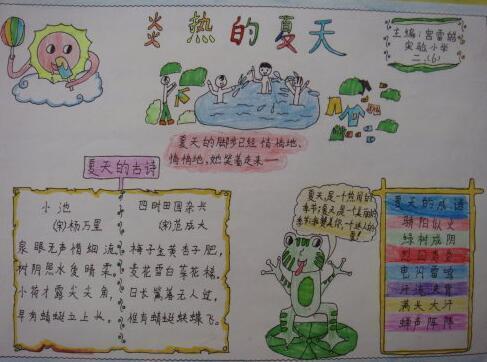 炎热的夏天
主编：宫雷皓
实验小学
二.(6)
夏天的脚步已经悄悄地、
悄悄地,她笑着走来——
夏天的古诗
小池
(宋)杨万里
泉眼无声惜细流
树阴照水爱晴柔
小荷才露尖尖角
早有蜻蜓立上头
四时田园杂兴
(宋)范成大
梅子金黄杏子肥
麦花雪白菜花稀
日长篱落无人过
但有蜻蜓蛱蝶飞
夏天,是一个热闹的
夏天的成语
骄阳似火
绿树成阴
烈日炎炎
电闪雷鸣
满头大汗
蝉声阵阵